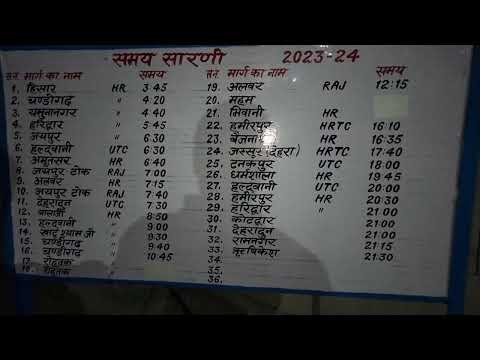 समय सारणी 2023-24
क्र.स. मार्ग का नाम समय
1. हिसार HR 3:45
2. चण्डीगढ़ " 4:20
3. यमुनानगर " 4:40
4. हरिद्वार " 5:45
5. जयपुर " 6:30
6. हल्द्वानी UTC 6:30
7. अमृतसर HR 6:40
8. जयपुर टोंक RAJ 7:00
9. अलवर HR 7:15
10. जयपुर टोंक RAJ 7:40
11. देहरादून UTC 7:30
12. बालाजी HR 8:50
13. हल्द्वानी " 9:00
14. खाटू श्याम जी " 9:30
15. चण्डीगढ़ " 9:40
16. चण्डीगढ़ " 10:45
17. रोहतक
18. रोहतक
मार्ग का नाम समय
19. अलवर RAJ 12:15
20. महम
21. भिवानी HR
22. हमीरपुर HRTC 16:10
23. बैजनाथ HR 16:35
24. जस्सुर (देहरा) HRTC 17:40
25. टनकपुर UTC 18:00
26. धर्मशाला HR 19:45
27. हल्द्वानी UTC 20:00
28. हमीरपुर HR 20:30
29. हरिद्वार " 21:00
30. कोटद्वार
31. देहरादून 21:00
32. रामनगर 21:15
33. ऋषिकेश 21:30
34.
35.
36.